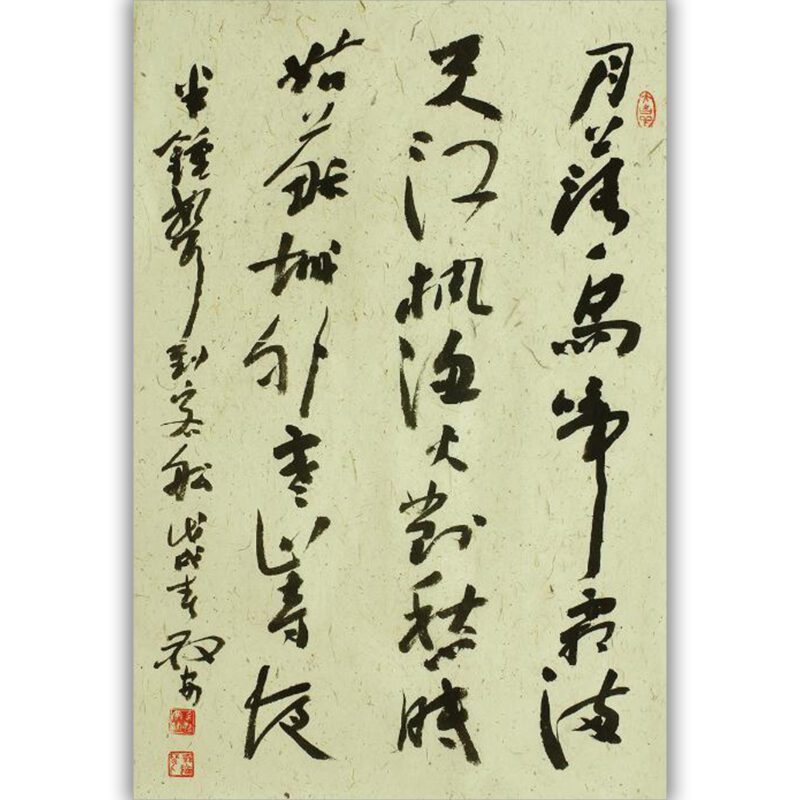 月落烏啼霜滿
天江楓漁火對愁眠
姑蘇城外寒山寺夜
半鐘聲到客船 戊戌春